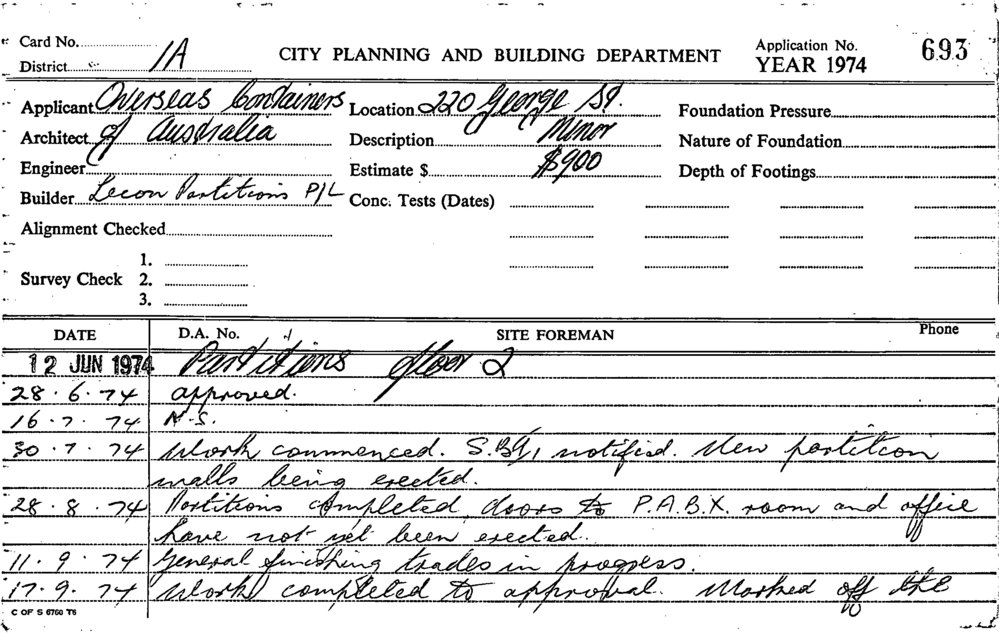 Card No. CITY PLANNING AND BUILDING DEPARTMENT Application No. 693
District 1A YEAR 1974
Applicant Overseas Containers Location 220 George St. Foundation Pressure
Architect of Australia Description Minor Nature of Foundation
Engineer Estimate $ $900 Depth of Footings
Builder Lecon Partitions P/L Conc. Tests (Dates)
Alignment Checked
1.
Survey Check 2.
3.
DATE D.A. No. SITE FOREMAN Phone
12 JUN 1974 Partitions floor 2
28.6.74 approved.
16.7.74 N.S.
30.7.74 Work commenced. notified. New partition
walls being erected.
28.8.74 Partitions completed, doors to P.A.B.X. room and office
have not yet been erected.
11.9.74 General finishing trades in progress.
17.9.74 Work completed to approval. Marked off the
C OF S 6760 T6